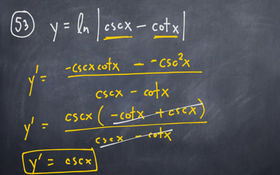 53 y = ln |cscx - cotx|
y' = -cscxcotx - -csc²x / cscx - cotx
y' = cscx (-cotx + cscx) / cscx - cotx
y' = cscx